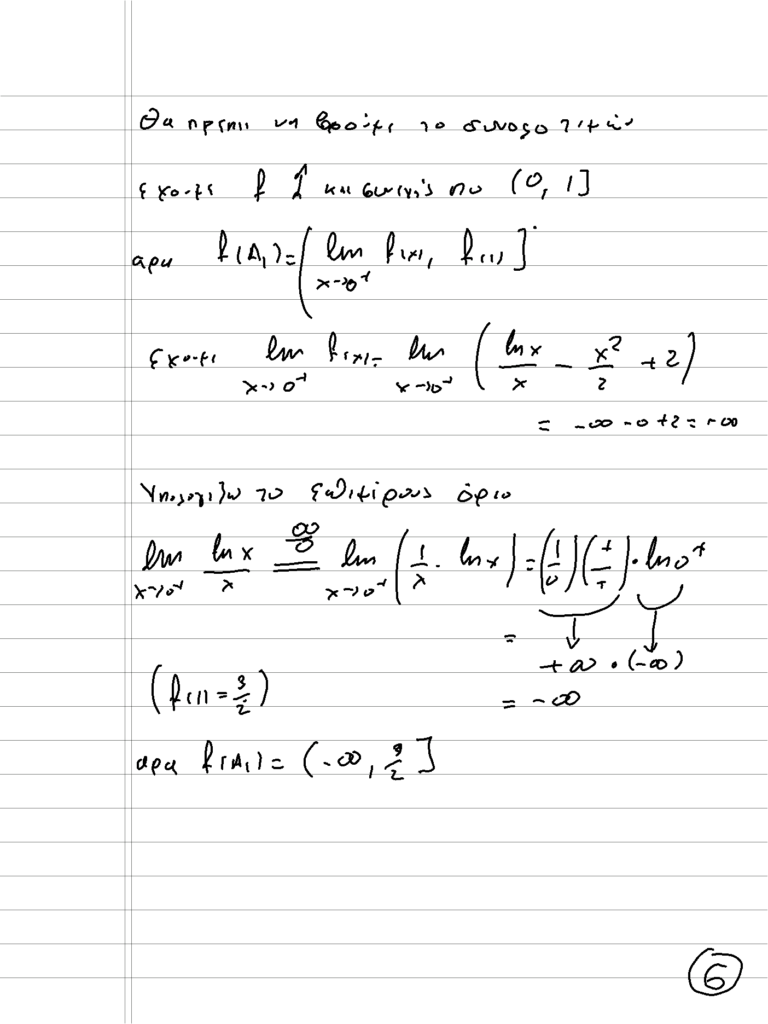 Θα πρέπει να βρούμε το σύνολο τιμών
έχουμε f ↑ και συνεχής στο (0, 1]
άρα f(A₁) = ( lim x→0⁺ f(x), f(1) ]
έχουμε lim x→0⁺ f(x) = lim x→0⁺ ( ln x / x − x² / 2 + 2 )
= −∞ − 0 + 2 = −∞
Υπολογίζω το επιμέρους όριο
lim x→0⁺ ln x / x = (∞/0) lim x→0⁺ ( 1/x · ln x ) = (1/0) (+/+) · ln 0⁺
= +∞ · (−∞)
( f(1) = 3/2 ) = −∞
άρα f(A₁) = (−∞, 3/2 ]
6